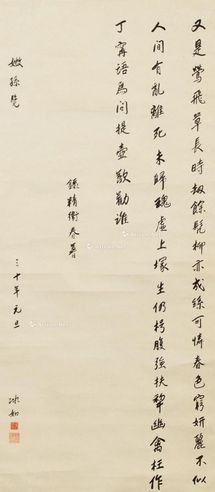 又是鶯飛草長時拔餘髡柳亦成絲可憐春色窮妍麗不似
人間有亂離死未歸魂虛上塚生仍枵腹強扶犁幽禽枉作
丁寧語為問提壺歌勸誰
錄精衛春暮
嫂孫覽
三十年元旦
冰如